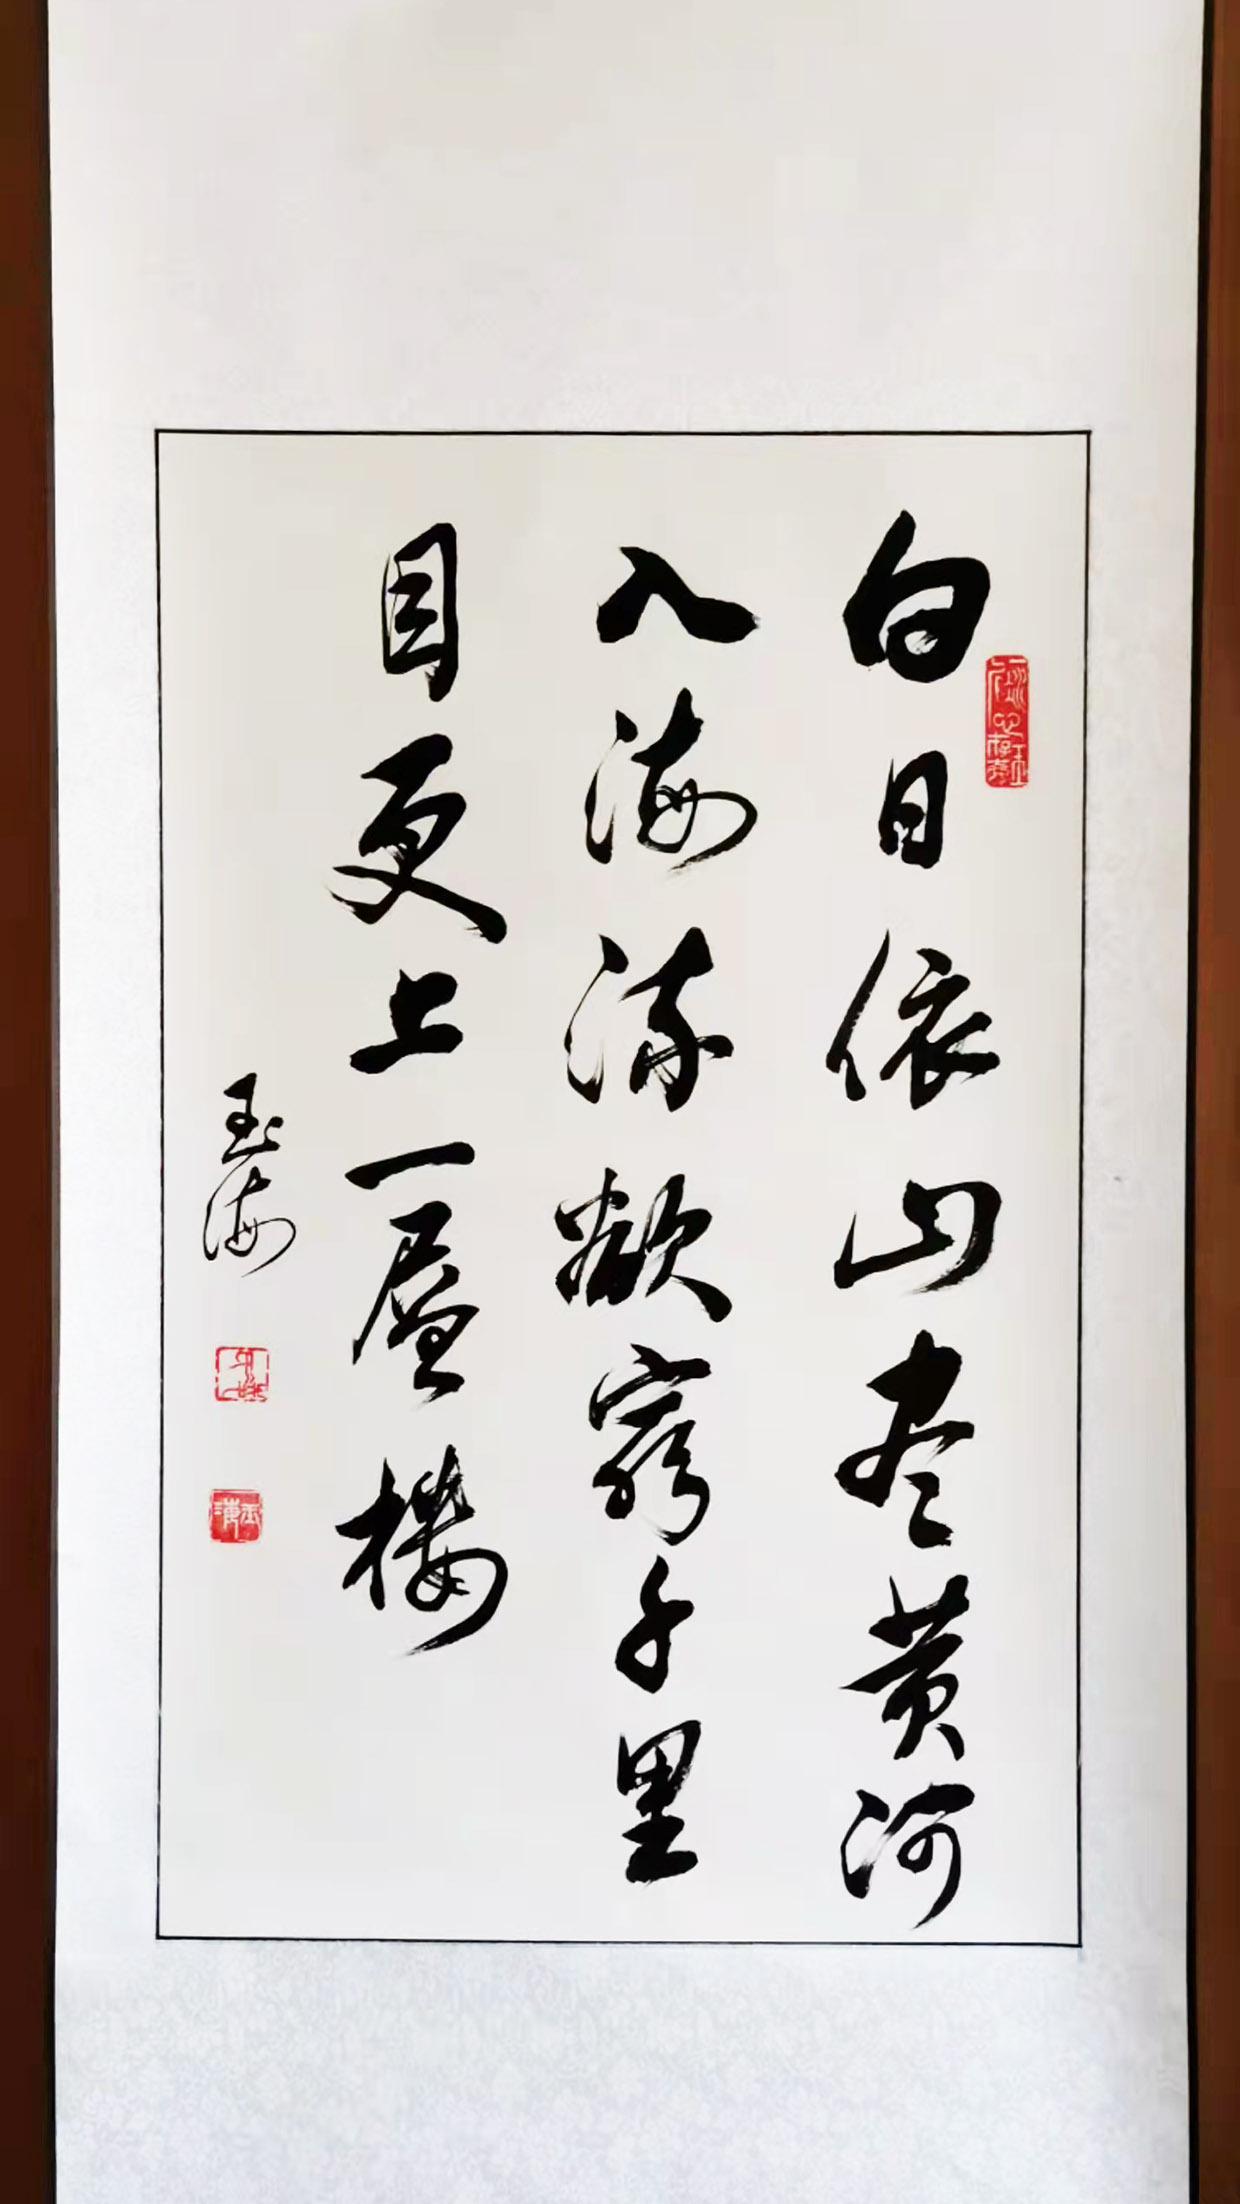 白日依山尽黄河
入海流欲穷千里
目更上一层楼
玉海
玉海